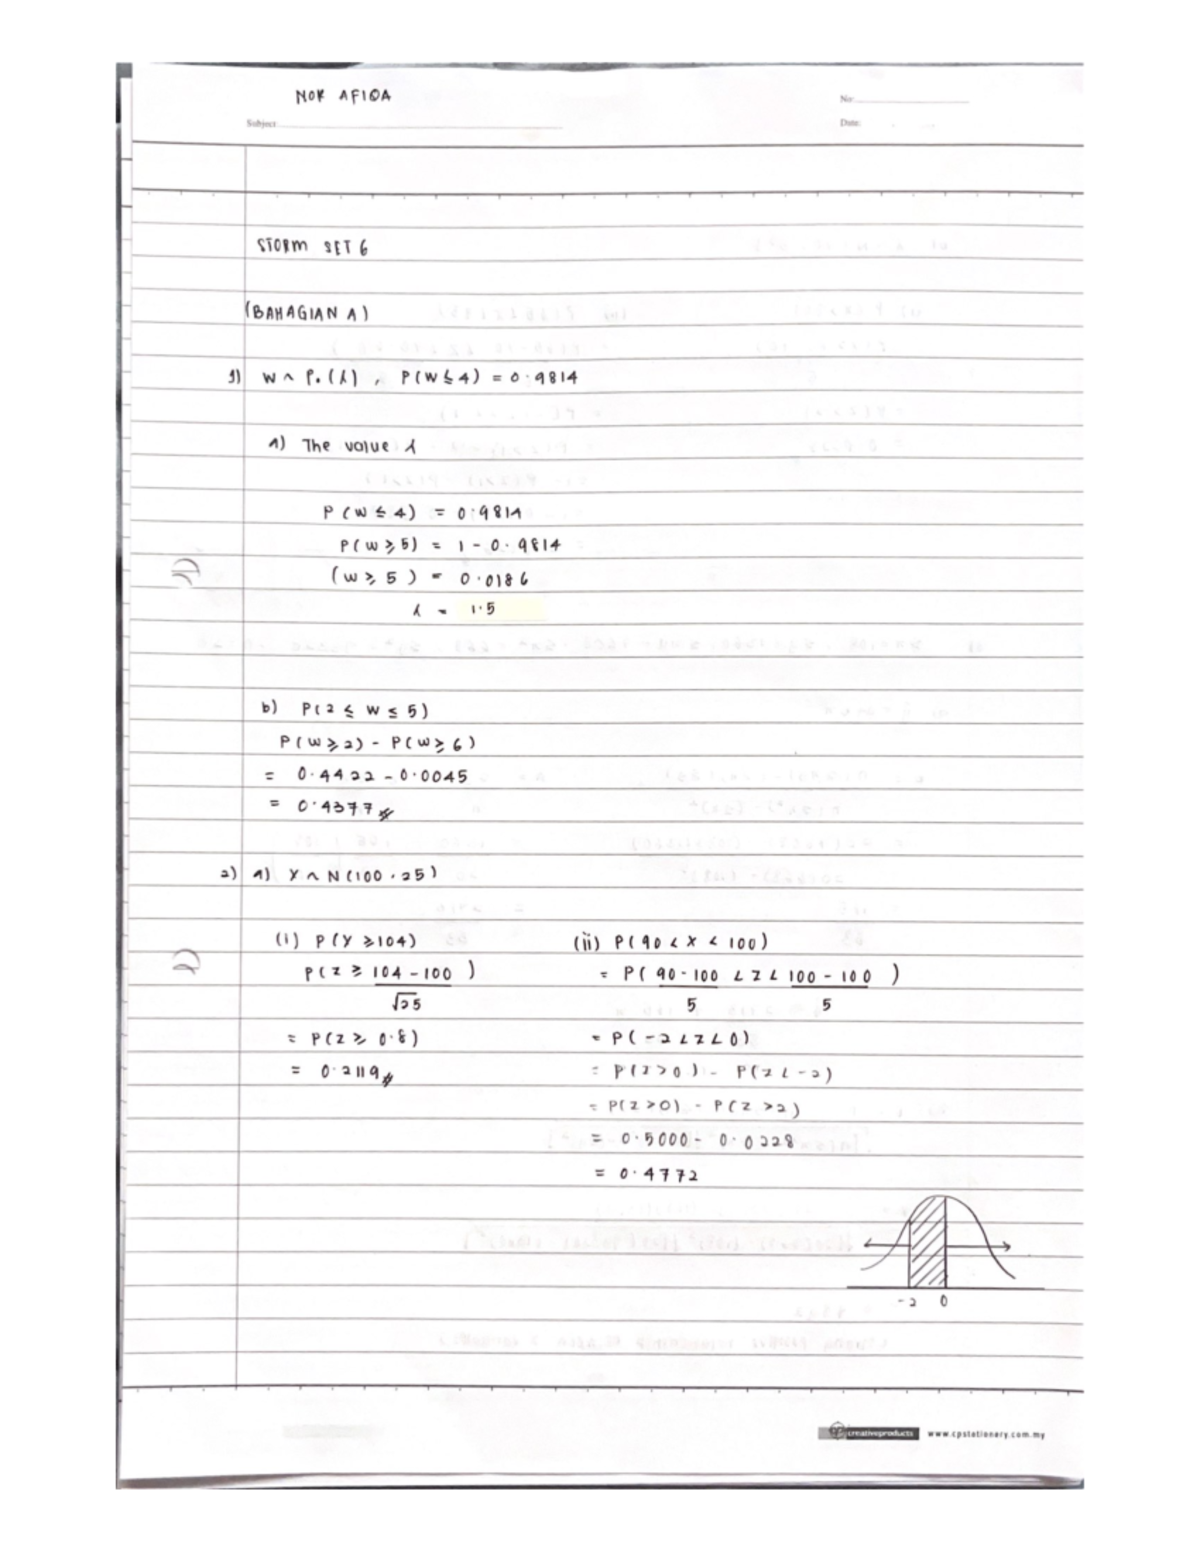 NOR AFIQA
No:
Subject
Date:
STORM SET 6
(BAHAGIAN A)
1) W ~ P.(λ) , P(W ≤ 4) = 0.9814
a) The value λ
P(W ≤ 4) = 0.9814
P(W ≥ 5) = 1 - 0.9814
(W ≥ 5) = 0.0186
λ = 1.5
b) P(2 ≤ W ≤ 5)
P(W ≥ 2) - P(W ≥ 6)
= 0.4422 - 0.0045
= 0.4377
2) a) X ~ N(100, 25)
(i) P(X ≥ 104) (ii) P(90 < X < 100)
P(Z ≥ 104 - 100 / √25) = P(90 - 100 / 5 < Z < 100 - 100 / 5)
= P(Z ≥ 0.8) = P(-2 < Z < 0)
= 0.2119 = P(Z > 0) - P(Z < -2)
= P(Z > 0) - P(Z > 2)
= 0.5000 - 0.0228
= 0.4772
-2 0
creativeproducts www.cpstationery.com.my